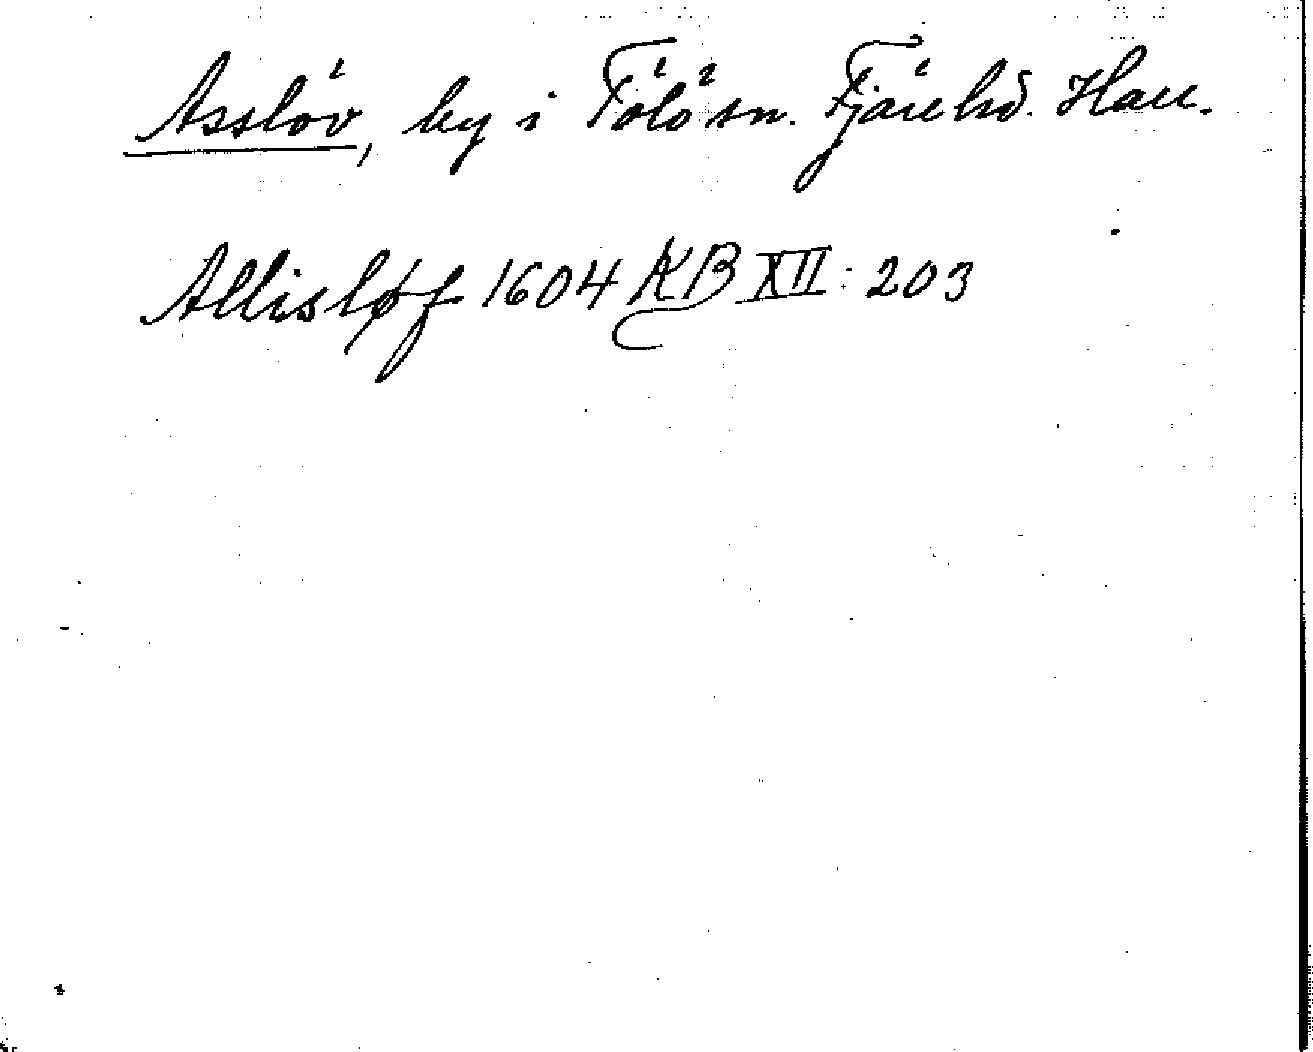 Asslöv, by i Fölö sn. Fjäre hd. Hall.
Allisløf 1604 KB XII: 203